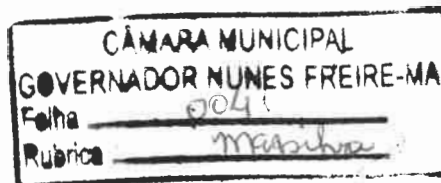 CÂMARA MUNICIPAL
GOVERNADOR NUNES FREIRE-MA
Folha 004
Rubrica